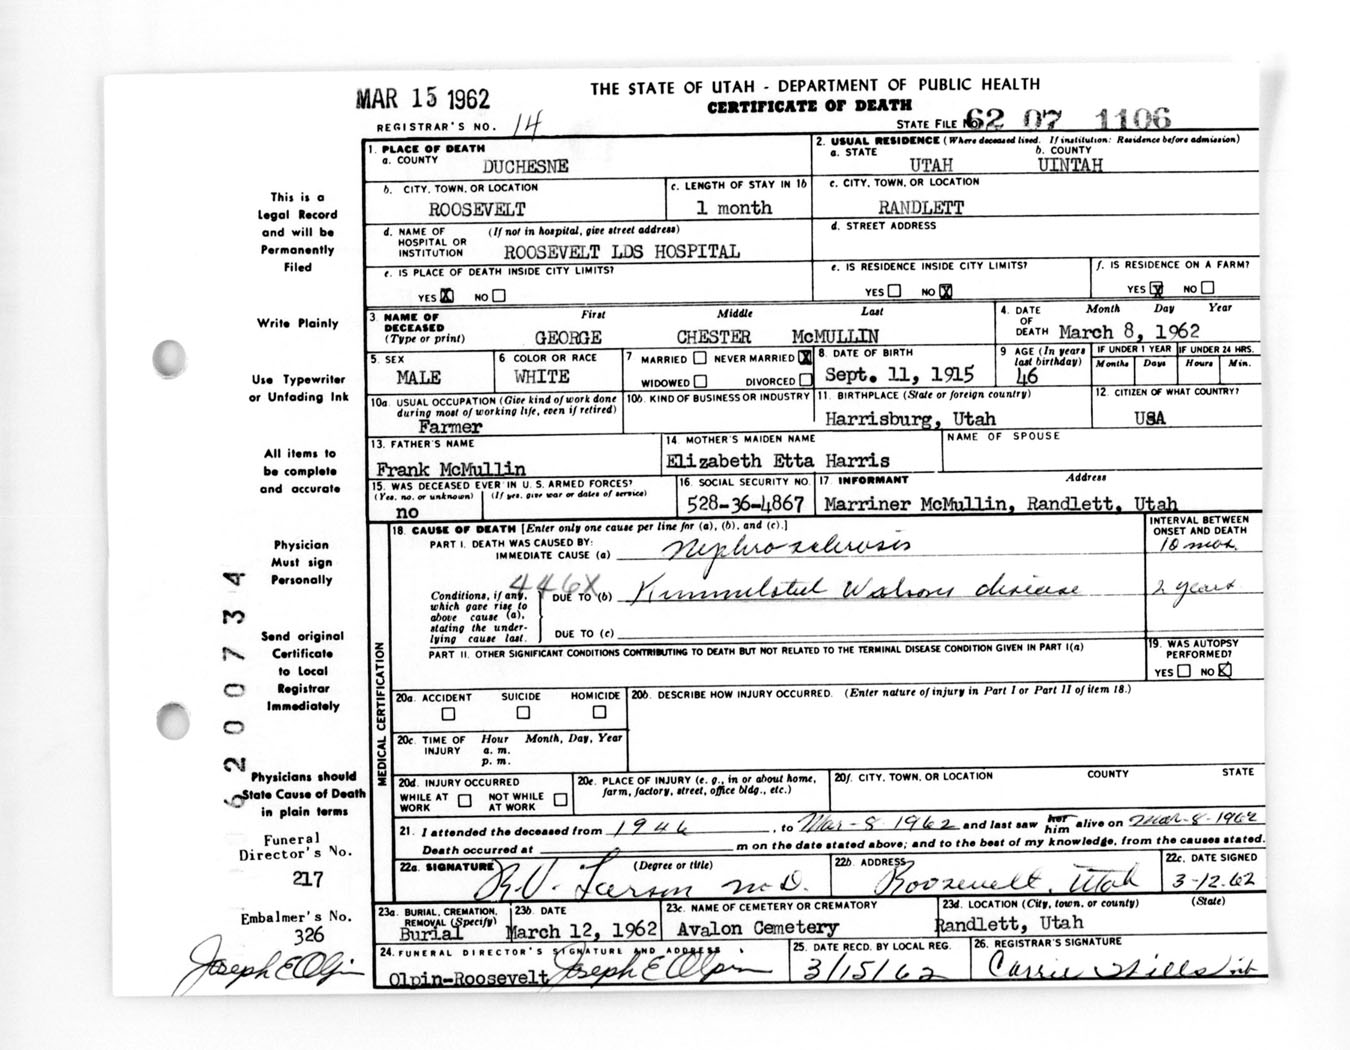 MAR 15 1962
THE STATE OF UTAH - DEPARTMENT OF PUBLIC HEALTH
CERTIFICATE OF DEATH
REGISTRAR'S NO. 14
STATE FILE NO. 62 07 1106
This is a
Legal Record
and will be
Permanently
Filed
Write Plainly
Use Typewriter
or Unfading Ink
All items to
be complete
and accurate
Physician
Must sign
Personally
Send original
Certificate
to Local
Registrar
Immediately
Physicians should
State Cause of Death
in plain terms
Funeral
Director's No.
217
Embalmer's No.
326
Joseph E Olpin
6200734
1. PLACE OF DEATH
a. COUNTY DUCHESNE
2. USUAL RESIDENCE (Where deceased lived. If institution: Residence before admission)
a. STATE UTAH b. COUNTY UINTAH
b. CITY, TOWN, OR LOCATION ROOSEVELT
c. LENGTH OF STAY IN 1b 1 month
c. CITY, TOWN, OR LOCATION RANDLETT
d. NAME OF HOSPITAL OR INSTITUTION (If not in hospital, give street address) ROOSEVELT LDS HOSPITAL
d. STREET ADDRESS
e. IS PLACE OF DEATH INSIDE CITY LIMITS?
YES X NO
e. IS RESIDENCE INSIDE CITY LIMITS?
YES NO X
f. IS RESIDENCE ON A FARM?
YES X NO
3. NAME OF DECEASED (Type or print) First Middle Last
GEORGE CHESTER McMULLIN
4. DATE OF DEATH Month Day Year
March 8, 1962
5. SEX MALE
6 COLOR OR RACE WHITE
7 MARRIED NEVER MARRIED X
WIDOWED DIVORCED
8. DATE OF BIRTH Sept. 11, 1915
9 AGE (In years last birthday) 46
IF UNDER 1 YEAR Months Days
IF UNDER 24 HRS. Hours Min.
10a. USUAL OCCUPATION (Give kind of work done during most of working life, even if retired)
Farmer
10b. KIND OF BUSINESS OR INDUSTRY
11. BIRTHPLACE (State or foreign country)
Harrisburg, Utah
12. CITIZEN OF WHAT COUNTRY?
USA
13. FATHER'S NAME
Frank McMullin
14. MOTHER'S MAIDEN NAME
Elizabeth Etta Harris
NAME OF SPOUSE
15. WAS DECEASED EVER IN U. S. ARMED FORCES?
(Yes, no, or unknown) (If yes, give war or dates of service)
no
16. SOCIAL SECURITY NO.
528-36-4867
17 INFORMANT Address
Marriner McMullin, Randlett, Utah
MEDICAL CERTIFICATION
18. CAUSE OF DEATH [Enter only one cause per line for (a), (b), and (c).]
INTERVAL BETWEEN ONSET AND DEATH
PART I. DEATH WAS CAUSED BY:
IMMEDIATE CAUSE (a) Nephro sclerosis 10 mos.
446X
Conditions, if any, which gave rise to above cause (a), stating the underlying cause last.
DUE TO (b) Kimmelstiel Wilson disease 2 years
DUE TO (c)
PART II. OTHER SIGNIFICANT CONDITIONS CONTRIBUTING TO DEATH BUT NOT RELATED TO THE TERMINAL DISEASE CONDITION GIVEN IN PART I(a)
19. WAS AUTOPSY PERFORMED?
YES NO X
20a. ACCIDENT SUICIDE HOMICIDE
20b. DESCRIBE HOW INJURY OCCURRED. (Enter nature of injury in Part I or Part II of item 18.)
20c. TIME OF INJURY Hour Month, Day, Year
a. m.
p. m.
20d. INJURY OCCURRED
WHILE AT WORK NOT WHILE AT WORK
20e. PLACE OF INJURY (e. g., in or about home, farm, factory, street, office bldg., etc.)
20f. CITY, TOWN, OR LOCATION COUNTY STATE
21. I attended the deceased from 1946, to Mar-8 1962 and last saw her him alive on Mar-8-1962
Death occurred at m on the date stated above; and to the best of my knowledge, from the causes stated.
22a. SIGNATURE (Degree or title)
R.V. Larson M.D.
22b. ADDRESS
Roosevelt, Utah
22c. DATE SIGNED
3-12-62
23a. BURIAL, CREMATION, REMOVAL (Specify)
Burial
23b. DATE
March 12, 1962
23c. NAME OF CEMETERY OR CREMATORY
Avalon Cemetery
23d. LOCATION (City, town, or county) (State)
Randlett, Utah
24. FUNERAL DIRECTOR'S SIGNATURE AND ADDRESS
Olpin-Roosevelt Joseph E Olpin
25. DATE RECD. BY LOCAL REG.
3/15/62
26. REGISTRAR'S SIGNATURE
Carrie